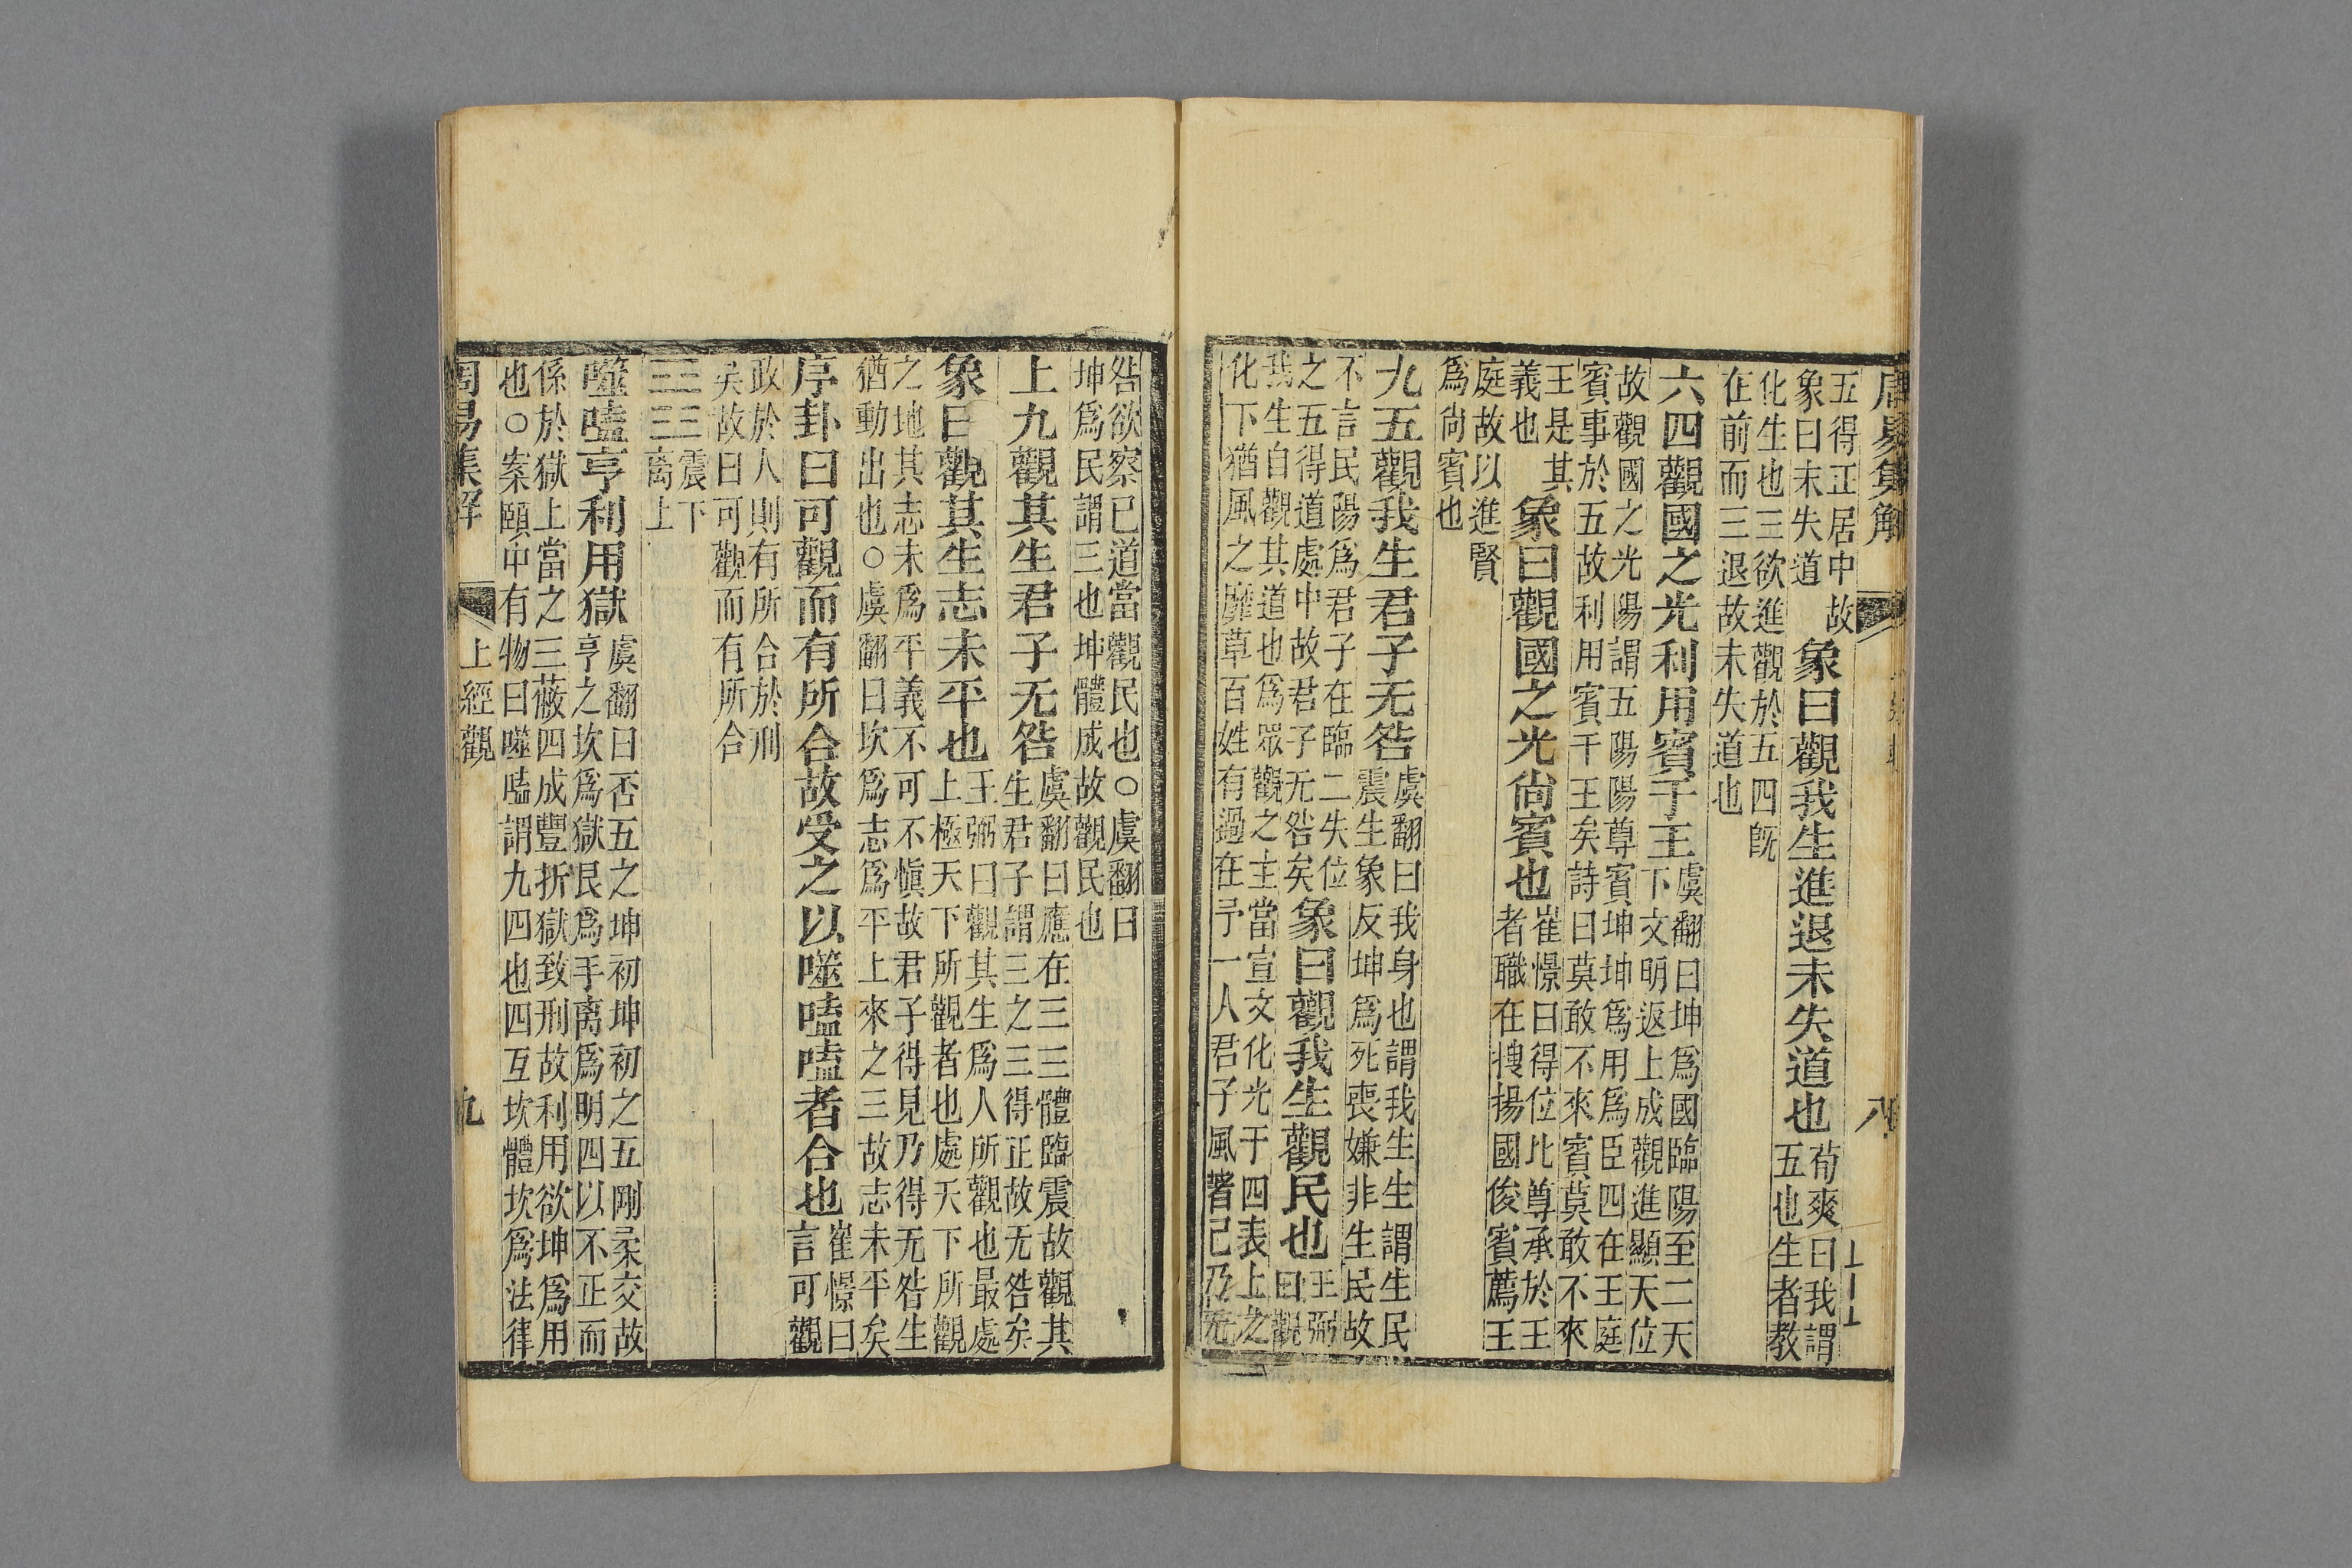 五得正居中故
象曰未失道
象曰觀我生進退未失道也
荀爽曰我謂
五也生者教
化生也三欲進觀於五四旣
在前而三退故未失道也
六四觀國之光利用賓于王
虞翻曰坤爲國臨陽至二天
下文明返上成觀進顯天位
故觀國之光陽謂五陽陽尊賓坤坤爲用爲臣四在王庭
賓事於五故利用賓于王矣詩曰莫敢不來賓莫敢不來
王是其
義也
象曰觀國之光尙賓也
崔憬曰得位比尊承於王
者職在搜揚國俊賓薦王
庭故以進賢
爲尙賓也
九五觀我生君子无咎
虞翻曰我身也謂我生生謂生民
震生象反坤爲死喪嫌非生民故
不言民陽爲君子在臨二失位
之五得道處中故君子无咎矣
象曰觀我生觀民也
王弼
曰觀
我生自觀其道也爲眾觀之主當宣文化光于四表上之
化下猶風之靡草百姓有過在予一人君子風著己乃无
咎欲察己道當觀民也○虞翻曰
坤爲民謂三也坤體成故觀民也
上九觀其生君子无咎
虞翻曰應在三三體臨震故觀其
生君子謂三之三得正故无咎矣
象曰觀其生志未平也
王弼曰觀其生爲人所觀也最處
上極天下所觀者也處天下所觀
之地其志未爲平義不可不慎故君子得見乃得无咎生
猶動出也○虞翻曰坎爲志爲平上來之三故志未平矣
序卦曰可觀而有所合故受之以噬嗑嗑者合也
崔憬曰
言可觀
政於人則有所合於刑
矣故曰可觀而有所合
震下
离上
噬嗑亨利用獄
虞翻曰否五之坤初坤初之五剛柔交故
亨之坎爲獄艮爲手离爲明四以不正而
係於獄上當之三蔽四成豐折獄致刑故利用欲坤爲用
也○案頤中有物曰噬嗑謂九四也四互坎體坎爲法律
周易集解
上經觀
九